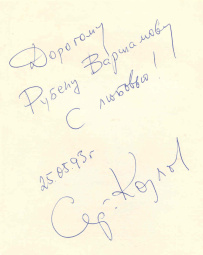 Дорогому
Рубену Варшамову
С любовью!
25.05.93г
Сер. Козлов